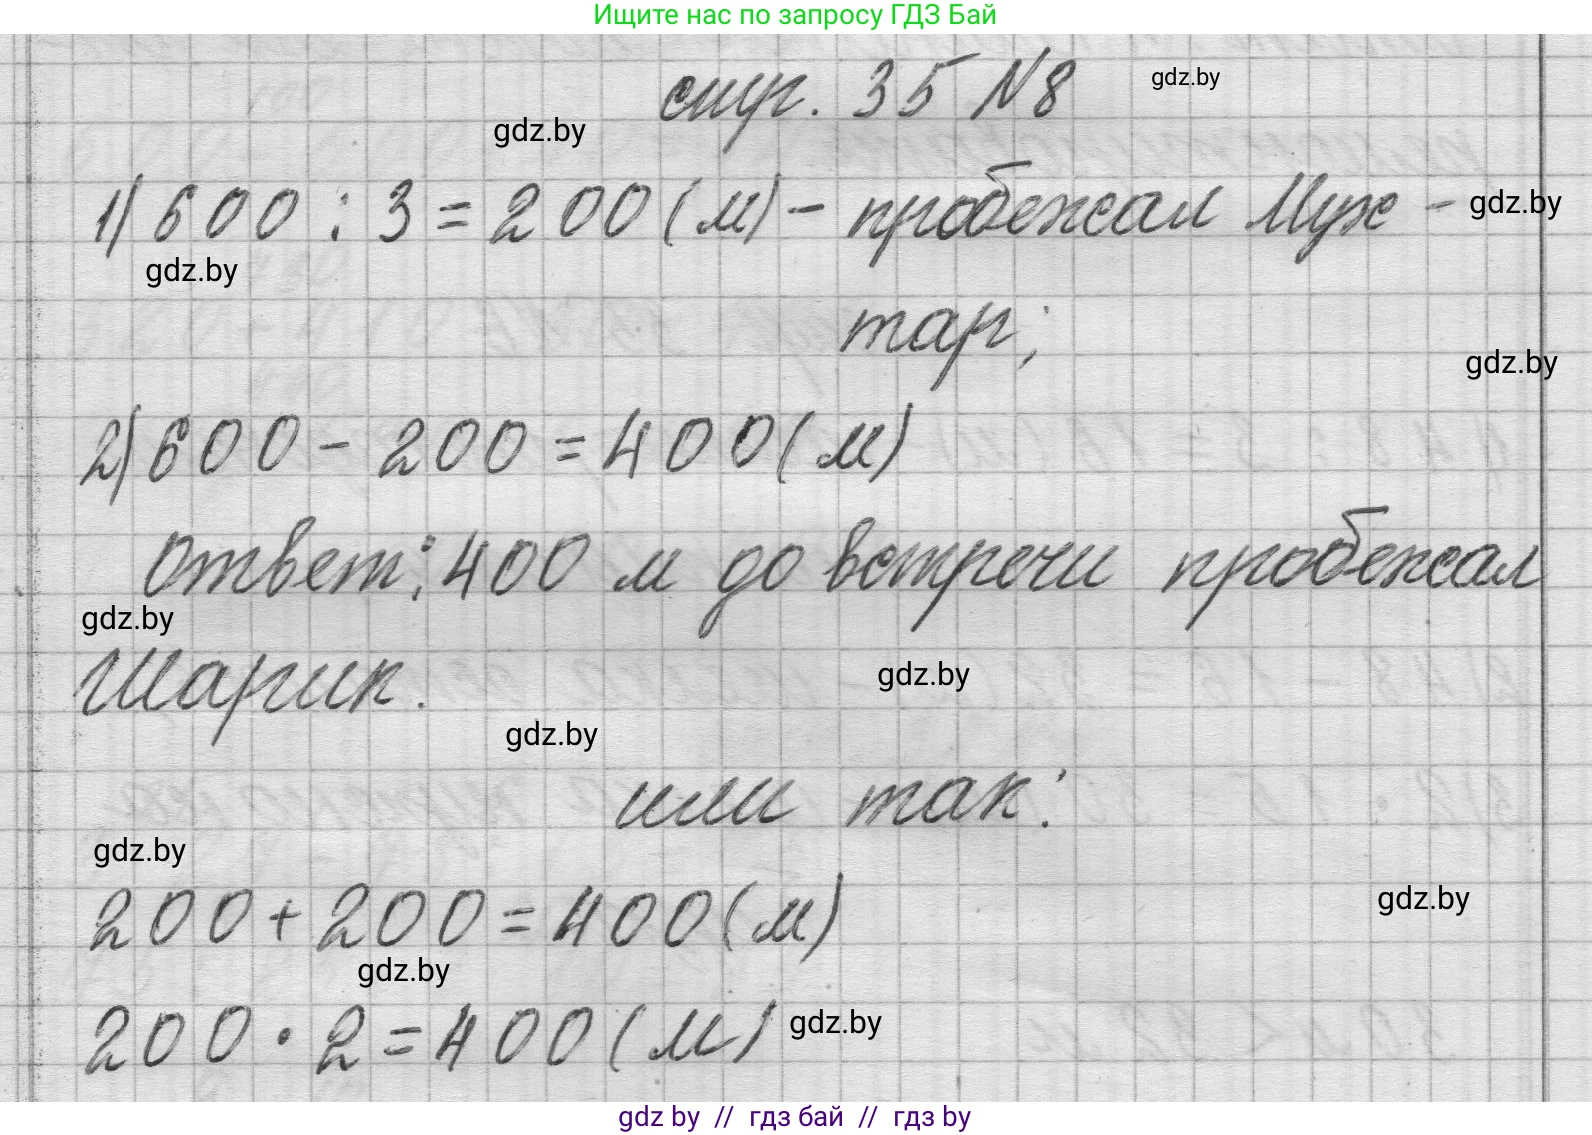 Ищите нас по запросу ГДЗ Бай
стр. 35 №8
gdz.by
gdz.by
1) 600 : 3 = 200 (м) - пробежал Мух -
gdz.by
gdz.by
тар;
gdz.by
2) 600 - 200 = 400 (м)
Ответ: 400 м до встречи пробежал
gdz.by
Шарик.
gdz.by
gdz.by
или так:
gdz.by
200 + 200 = 400 (м)
gdz.by
gdz.by
200 · 2 = 400 (м)
gdz.by
gdz by // гдз бай // гдз by